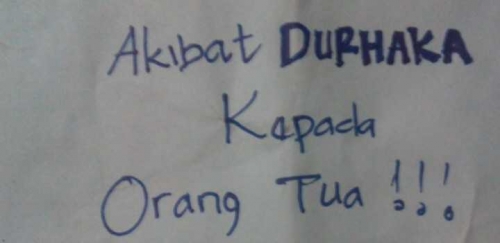 Akibat DURHAKA
Kepada
Orang Tua !!!